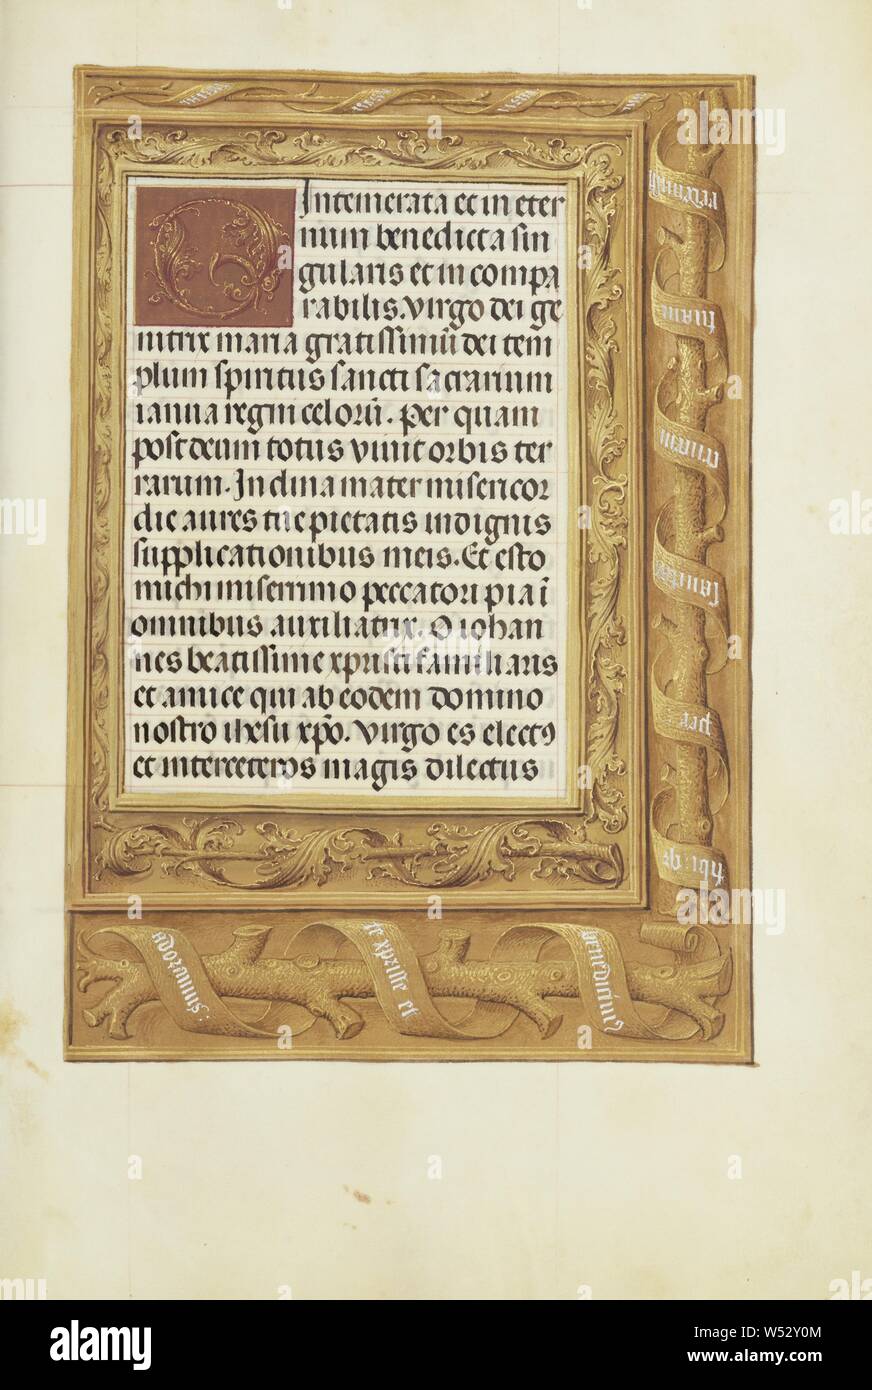 O Intemerata et in eter
num benedicta sin
gularis et in compa
rabilis. virgo dei ge
nitrix maria gratissimū dei tem
plum spiritus sancti sacrarium
ianua regni celorū. per quam
post deum totus vivit orbis ter
rarum. Inclina mater misericor
die aures tue pietatis indignis
supplicationibus meis. Et esto
michi miserrimo peccatori pia ī
omnibus auxiliatrix. O iohan
nes beatissime xpristi familiaris
et amice qui ab eodem domino
nostro ihesu xpō. virgo es electꝯ
et inter ceteros magis dilectus
adoramus
te xpriste et
benedicim⁹
tibi. qr
per
sanctam
crucem
tuam
redemisti
alamy
Image ID: W52Y0M
www.alamy.com